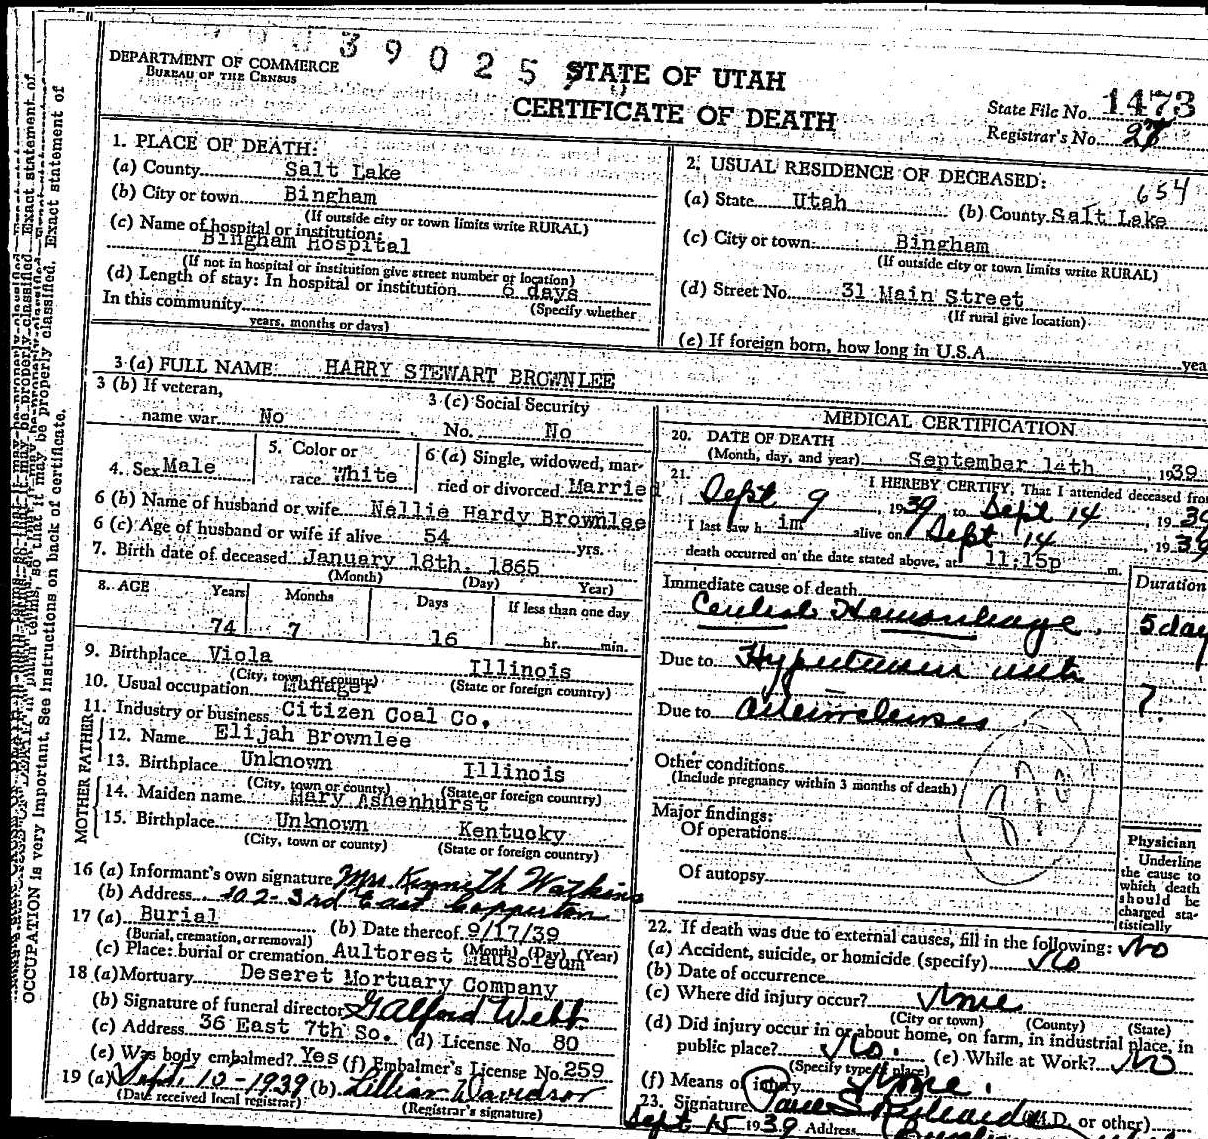 39025
DEPARTMENT OF COMMERCE
BUREAU OF THE CENSUS
STATE OF UTAH
CERTIFICATE OF DEATH
State File No. 1473
Registrar's No.
1. PLACE OF DEATH:
(a) County Salt Lake
(b) City or town Bingham
(If outside city or town limits write RURAL)
(c) Name of hospital or institution:
Bingham Hospital
(If not in hospital or institution give street number or location)
(d) Length of stay: In hospital or institution 6 days
(Specify whether
In this community
years, months or days)
2. USUAL RESIDENCE OF DECEASED:
654
(a) State Utah (b) County Salt Lake
(c) City or town: Bingham
(If outside city or town limits write RURAL)
(d) Street No. 31 Main Street
(If rural give location)
(e) If foreign born, how long in U.S.A. yea
3 (a) FULL NAME HARRY STEWART BROWNLEE
3 (b) If veteran,
name war No
3 (c) Social Security
No. No
4. Sex Male
5. Color or
race White
6 (a) Single, widowed, mar-
ried or divorced Married
6 (b) Name of husband or wife Nellie Hardy Brownlee
6 (c) Age of husband or wife if alive 54 yrs.
7. Birth date of deceased January 18th. 1865
(Month) (Day) Year)
8. AGE Years Months Days If less than one day
74 7 16 hr. min.
9. Birthplace Viola Illinois
(City, town or county) (State or foreign country)
10. Usual occupation Manager
11. Industry or business Citizen Coal Co.
FATHER
12. Name Elijah Brownlee
13. Birthplace Unknown Illinois
(City, town or county) (State or foreign country)
MOTHER
14. Maiden name Mary Ashenhurst
15. Birthplace Unknown Kentucky
(City, town or county) (State or foreign country)
16 (a) Informant's own signature Mrs Kenneth Watkins
(b) Address 102-3rd East Copperton
17 (a) Burial (b) Date thereof 9/17/39
(Burial, cremation, or removal) (Month) (Day) (Year)
(c) Place: burial or cremation Aultorest Mausoleum
18 (a) Mortuary Deseret Mortuary Company
(b) Signature of funeral director Galford Webb
(c) Address 36 East 7th So. (d) License No. 80
(e) Was body embalmed? Yes (f) Embalmer's License No. 259
19 (a) Sept. 10-1939 (b) Lillian Davidson
(Date received local registrar) (Registrar's signature)
MEDICAL CERTIFICATION
20. DATE OF DEATH
(Month, day, and year) September 14th, 1939
21. I HEREBY CERTIFY, That I attended deceased from
Sept 9, 1939, to Sept 14, 1939
I last saw h im alive on Sept 14, 1939
death occurred on the date stated above, at 11:15p m.
Duration
Immediate cause of death
Cerebral Hemorrhage. 5 day
Due to Hypertension with ?
Due to arteriosclerosis
Other conditions
(Include pregnancy within 3 months of death)
Major findings:
Of operations
Of autopsy
Physician
Underline
the cause to
which death
should be
charged sta-
tistically
22. If death was due to external causes, fill in the following: No
(a) Accident, suicide, or homicide (specify) No
(b) Date of occurrence
(c) Where did injury occur? None
(City or town) (County) (State)
(d) Did injury occur in or about home, on farm, in industrial place, in
public place? No. (e) While at Work? No
(Specify type of place)
(f) Means of injury None.
23. Signature Paul S. Richards (M.D. or other)
Sept 15 1939 Address
OCCUPATION is very important. See instructions on back of certificate.
Exact statement of